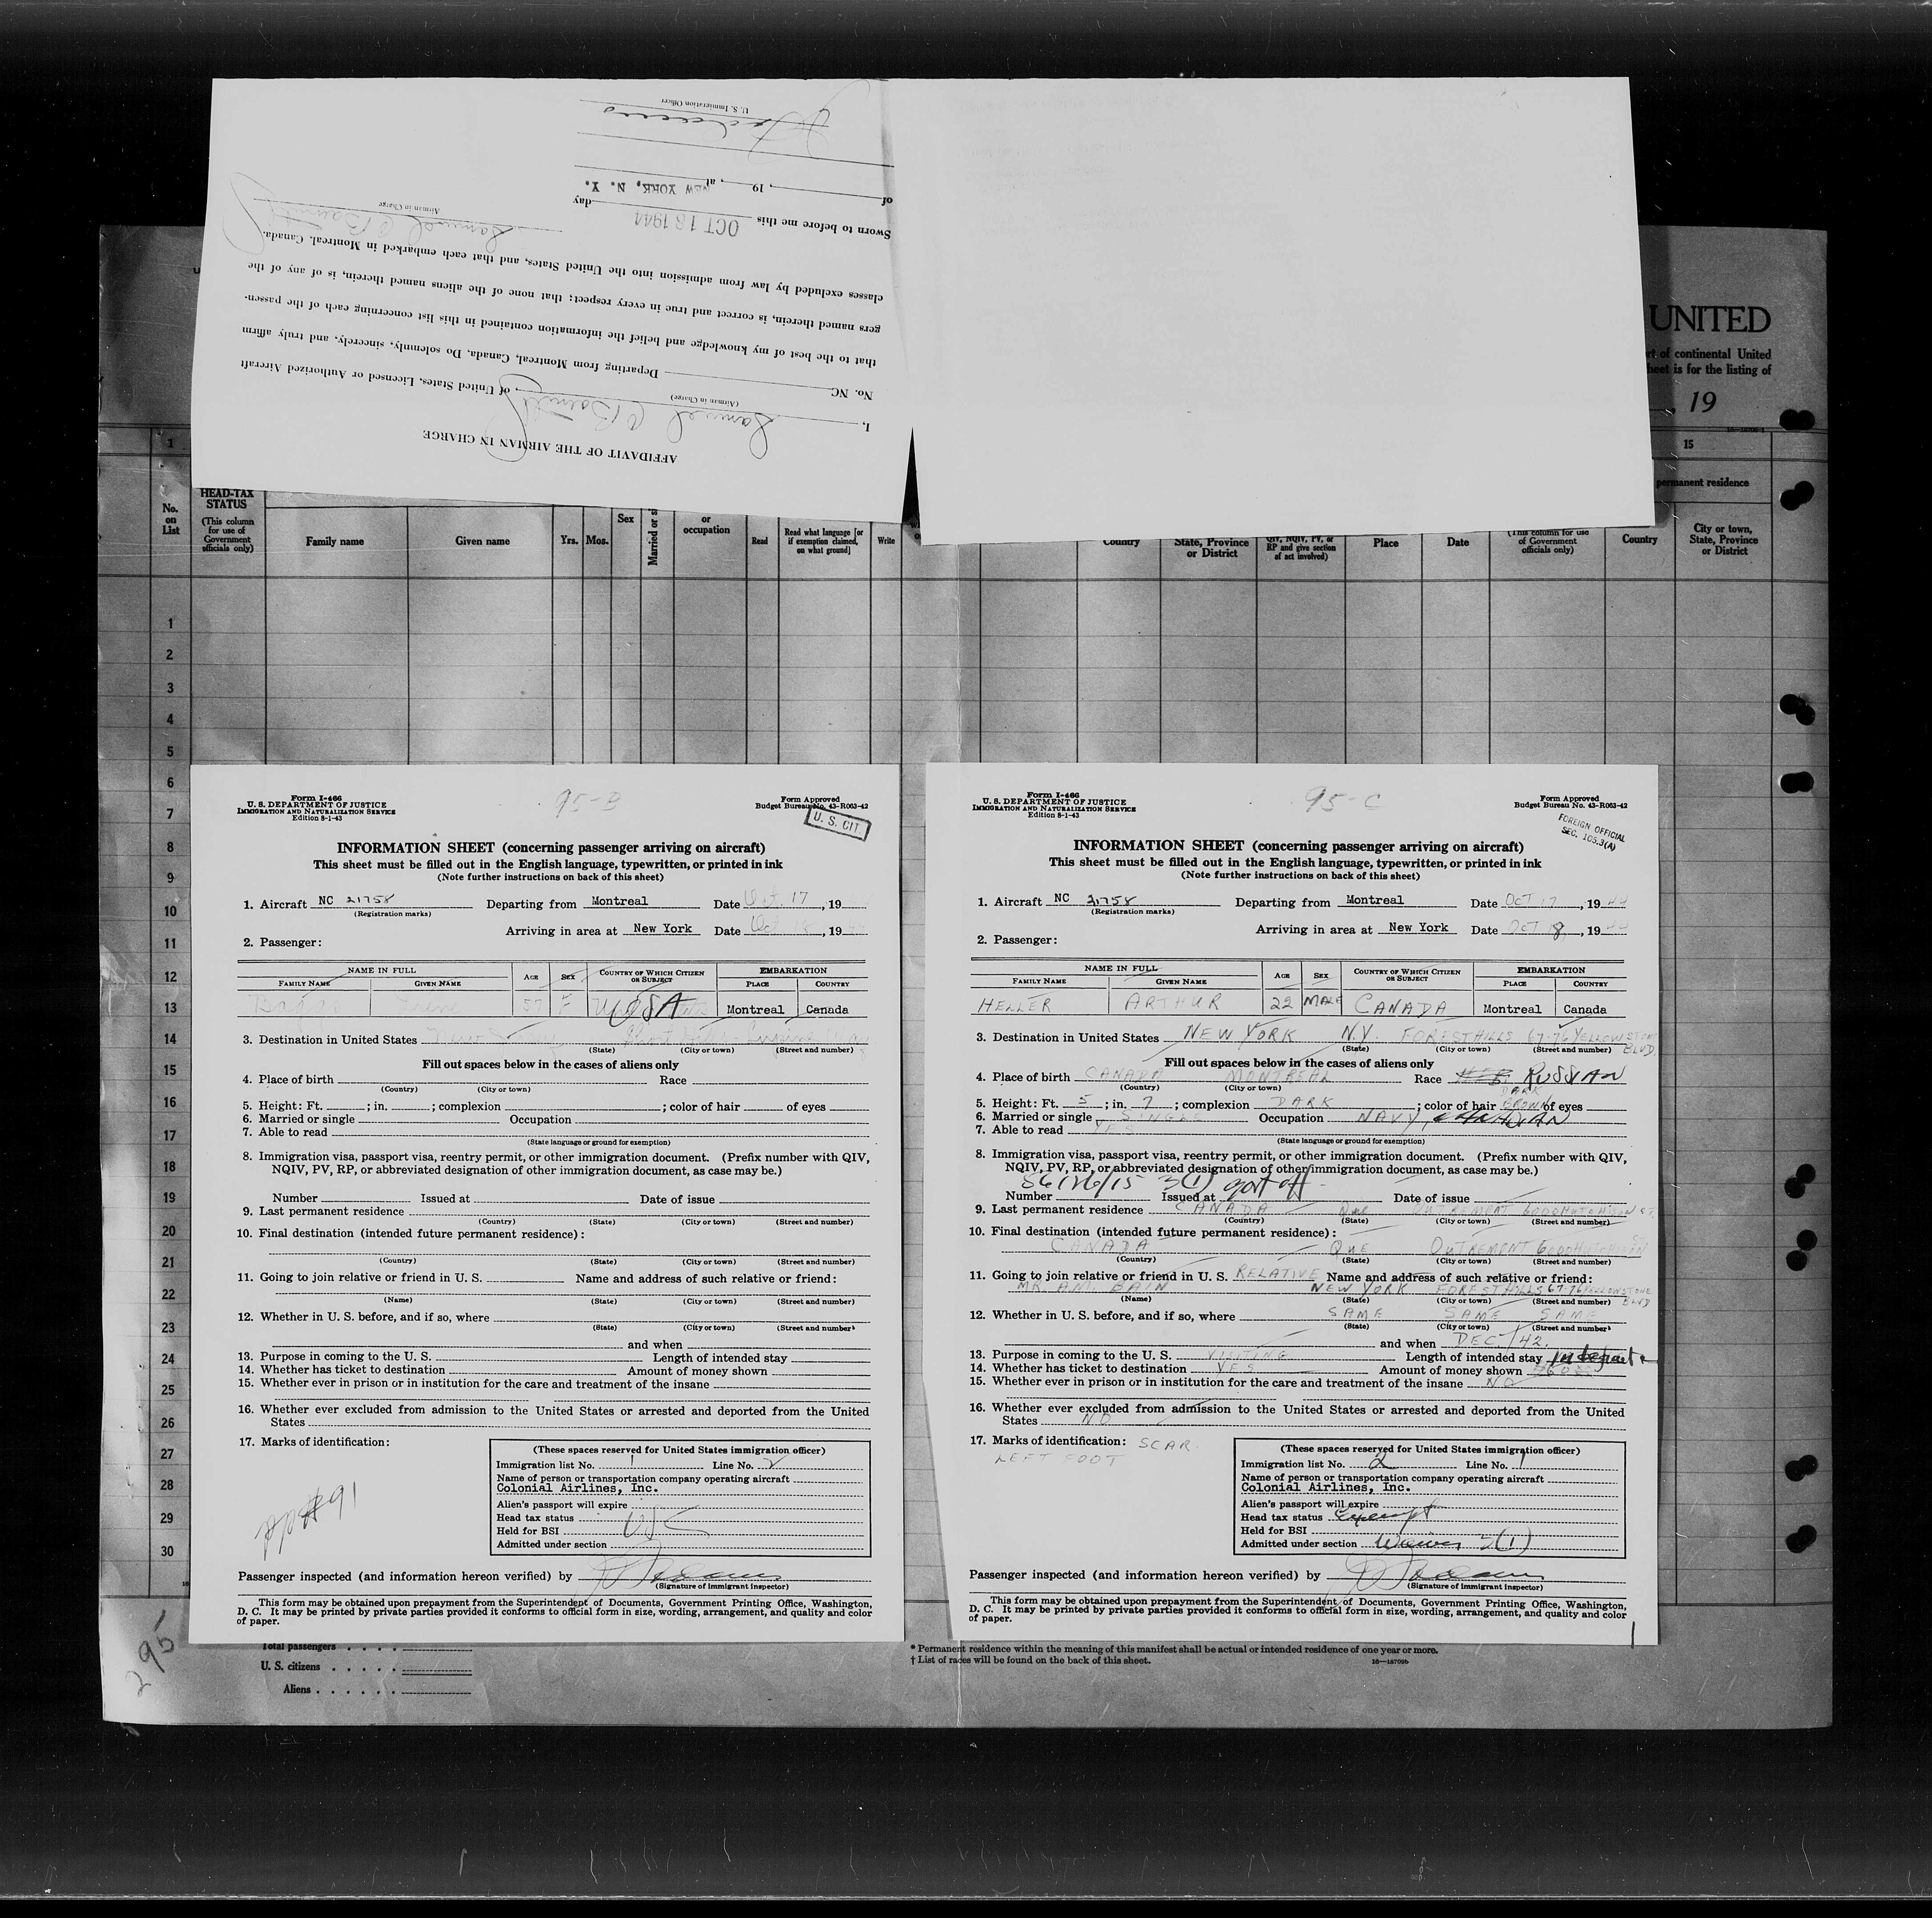 U. S. Immigration Officer
of , 19 , at NEW YORK, N. Y.
Sworn to before me this OCT 18 1944 day
Airman in Charge
classes excluded by law from admission into the United States, and that each embarked in Montreal, Canada.
gers named therein, is correct and true in every respect; that none of the aliens named therein, is of any of the
that to the best of my knowledge and belief the information contained in this list concerning each of the passen-
No. NC Departing from Montreal, Canada, Do solemnly, sincerely, and truly affirm
I, Samuel of United States, Licensed or Authorized Aircraft
(Airman in Charge)
AFFIDAVIT OF THE AIRMAN IN CHARGE
UNITED
rt of continental United
heet is for the listing of
, 19
1
15
permanent residence
No. on List
HEAD-TAX STATUS
(This column for use of Government officials only)
Family name
Given name
Yrs.
Mos.
Sex
or occupation
Read
Read what language [or if exemption claimed, on what ground]
Write
Country
State, Province or District
QIV, NQIV, PV, or RP and give section of act involved)
Place
Date
(This column for use of Government officials only)
Country
City or town, State, Province or District
1
2
3
4
5
6
7
8
9
10
11
12
13
14
15
16
17
18
19
20
21
22
23
24
25
26
27
28
29
30
Form I-466
U. S. DEPARTMENT OF JUSTICE
IMMIGRATION AND NATURALIZATION SERVICE
Edition 8-1-43
95-B
Form Approved
Budget Bureau No. 43-R063-42
U. S. CIT.
INFORMATION SHEET (concerning passenger arriving on aircraft)
This sheet must be filled out in the English language, typewritten, or printed in ink
(Note further instructions on back of this sheet)
1. Aircraft NC 21758 Departing from Montreal Date Oct. 17, 19
(Registration marks)
Arriving in area at New York Date Oct , 19
2. Passenger:
NAME IN FULL AGE SEX COUNTRY OF WHICH CITIZEN OR SUBJECT EMBARKATION
FAMILY NAME GIVEN NAME PLACE COUNTRY
57 F USA Montreal Canada
3. Destination in United States
(State) (City or town) (Street and number)
Fill out spaces below in the cases of aliens only
4. Place of birth Race
(Country) (City or town)
5. Height: Ft. ; in. ; complexion ; color of hair of eyes
6. Married or single Occupation
7. Able to read
(State language or ground for exemption)
8. Immigration visa, passport visa, reentry permit, or other immigration document. (Prefix number with QIV,
NQIV, PV, RP, or abbreviated designation of other immigration document, as case may be.)
Number Issued at Date of issue
9. Last permanent residence
(Country) (State) (City or town) (Street and number)
10. Final destination (intended future permanent residence):
(Country) (State) (City or town) (Street and number)
11. Going to join relative or friend in U. S. Name and address of such relative or friend:
(Name) (State) (City or town) (Street and number)
12. Whether in U. S. before, and if so, where
(State) (City or town) (Street and number)
and when
13. Purpose in coming to the U. S. Length of intended stay
14. Whether has ticket to destination Amount of money shown
15. Whether ever in prison or in institution for the care and treatment of the insane
16. Whether ever excluded from admission to the United States or arrested and deported from the United
States
17. Marks of identification:
(These spaces reserved for United States immigration officer)
Immigration list No. 1 Line No. 2
Name of person or transportation company operating aircraft
Colonial Airlines, Inc.
Alien's passport will expire
Head tax status USC
Held for BSI
Admitted under section
Passenger inspected (and information hereon verified) by
(Signature of immigrant inspector)
This form may be obtained upon prepayment from the Superintendent of Documents, Government Printing Office, Washington,
D. C. It may be printed by private parties provided it conforms to official form in size, wording, arrangement, and quality and color
of paper.
Form I-466
U. S. DEPARTMENT OF JUSTICE
IMMIGRATION AND NATURALIZATION SERVICE
Edition 8-1-43
95-C
Form Approved
Budget Bureau No. 43-R063-42
FOREIGN OFFICIAL
SEC. 105.3(A)
INFORMATION SHEET (concerning passenger arriving on aircraft)
This sheet must be filled out in the English language, typewritten, or printed in ink
(Note further instructions on back of this sheet)
1. Aircraft NC 21758 Departing from Montreal Date OCT 17, 19 44
(Registration marks)
Arriving in area at New York Date OCT 18, 19 44
2. Passenger:
NAME IN FULL AGE SEX COUNTRY OF WHICH CITIZEN OR SUBJECT EMBARKATION
FAMILY NAME GIVEN NAME PLACE COUNTRY
HELLER ARTHUR 22 MALE CANADA Montreal Canada
3. Destination in United States NEW YORK N.Y. FOREST HILLS 67-76 YELLOWSTONE BLVD.
(State) (City or town) (Street and number)
Fill out spaces below in the cases of aliens only
4. Place of birth CANADA MONTREAL Race RUSSIAN
(Country) (City or town)
5. Height: Ft. 5 ; in. 7 ; complexion DARK ; color of hair DARK BROWN of eyes
6. Married or single SINGLE Occupation NAVY, CANADIAN
7. Able to read YES
(State language or ground for exemption)
8. Immigration visa, passport visa, reentry permit, or other immigration document. (Prefix number with QIV,
NQIV, PV, RP, or abbreviated designation of other immigration document, as case may be.)
56126/15 3(1) govt off
Number Issued at Date of issue
9. Last permanent residence CANADA Que OUTREMONT 6000 HUTCHISON ST.
(Country) (State) (City or town) (Street and number)
10. Final destination (intended future permanent residence):
CANADA Que OUTREMONT 6000 HUTCHISON ST.
(Country) (State) (City or town) (Street and number)
11. Going to join relative or friend in U. S. RELATIVE Name and address of such relative or friend:
MR. AM. BAIN NEW YORK FOREST HILLS 67-76 YELLOWSTONE BLVD
(Name) (State) (City or town) (Street and number)
12. Whether in U. S. before, and if so, where SAME SAME SAME
(State) (City or town) (Street and number)
and when DEC. /42.
13. Purpose in coming to the U. S. VISITING Length of intended stay
14. Whether has ticket to destination YES Amount of money shown
15. Whether ever in prison or in institution for the care and treatment of the insane NO
16. Whether ever excluded from admission to the United States or arrested and deported from the United
States NO
17. Marks of identification: SCAR
LEFT FOOT
(These spaces reserved for United States immigration officer)
Immigration list No. 2 Line No. 1
Name of person or transportation company operating aircraft
Colonial Airlines, Inc.
Alien's passport will expire
Head tax status Exempt
Held for BSI
Admitted under section Waiver 3(1)
Passenger inspected (and information hereon verified) by
(Signature of immigrant inspector)
This form may be obtained upon prepayment from the Superintendent of Documents, Government Printing Office, Washington,
D. C. It may be printed by private parties provided it conforms to official form in size, wording, arrangement, and quality and color
of paper.
295
Total passengers
U. S. citizens
Aliens
* Permanent residence within the meaning of this manifest shall be actual or intended residence of one year or more.
† List of races will be found on the back of this sheet.